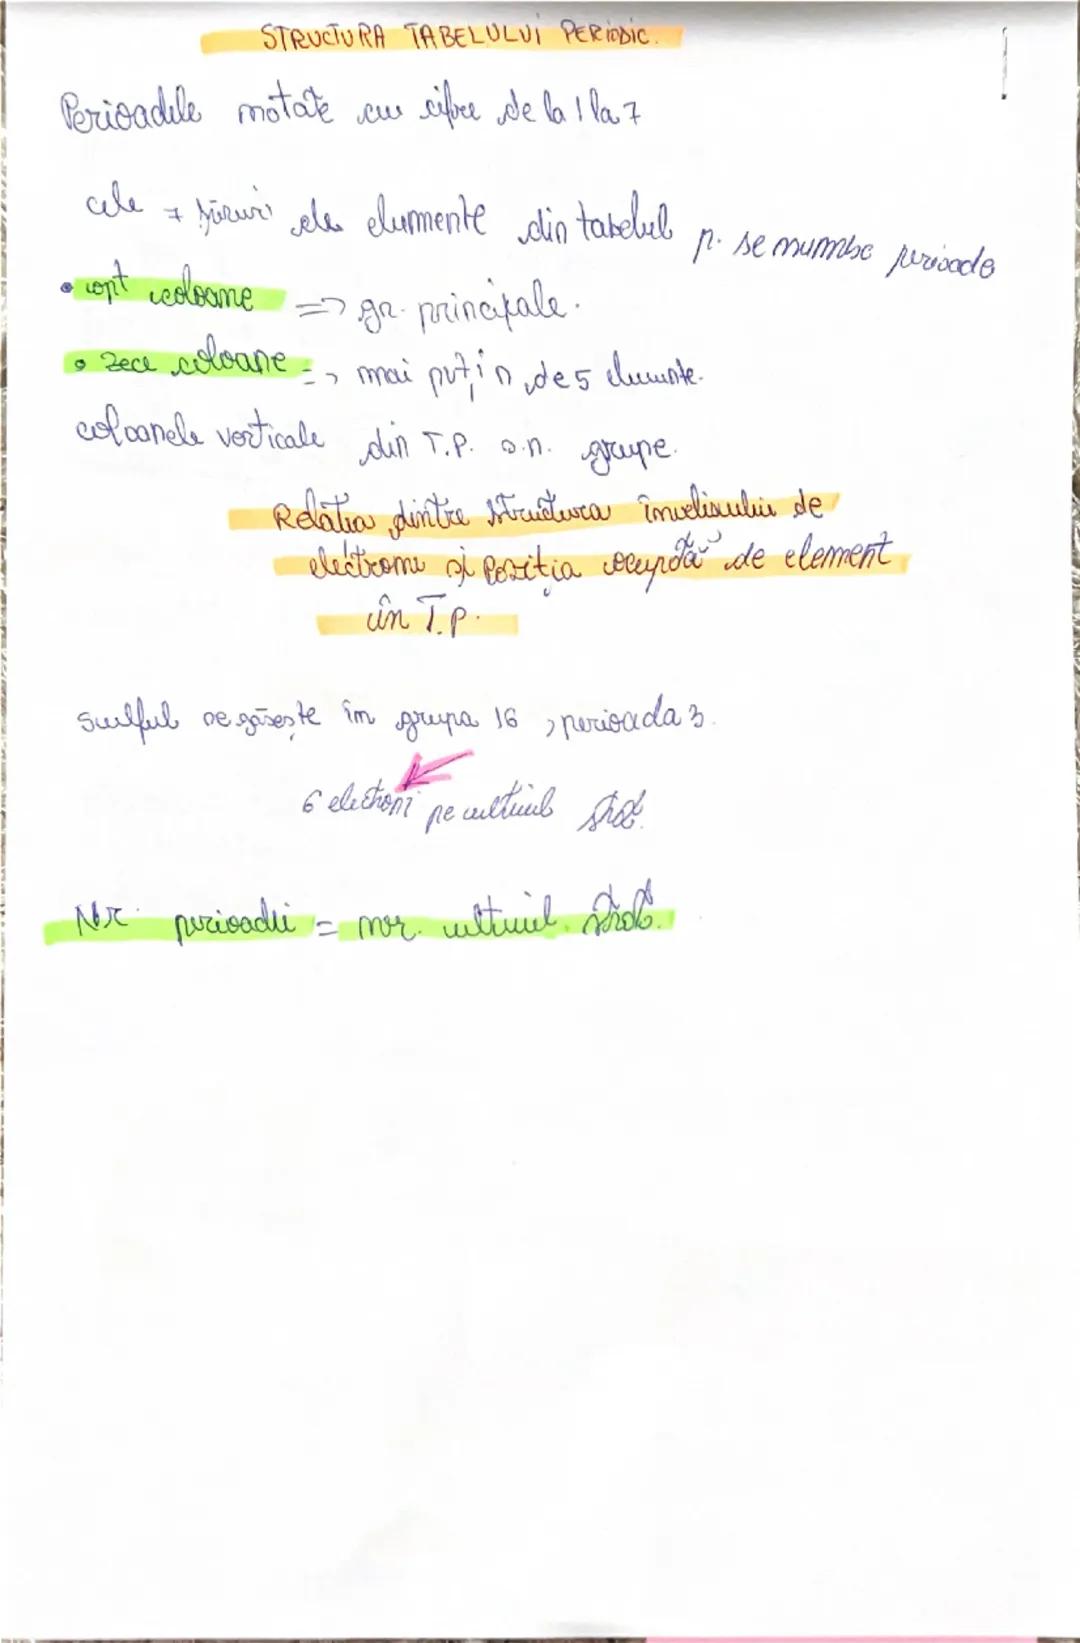 STRUCTURA TABELULUI PERIODIC.
Perioadele notate cu cifre de la 1 la 7
cele 7 șiruri de elemente din tabelul p. se numesc perioade
• opt coloane => gr. principale.
• zece coloane => mai puțin de 5 elemente.
coloanele verticale din T.P. s.n. grupe.
Relația dintre structura învelisului de
electroni și poziția ocupată de element
în T.P.
Sulful se găsește în grupa 16, perioada 3.
6 electroni pe ultimul strat.
Nr. perioadei = nr. ultimul. strat.